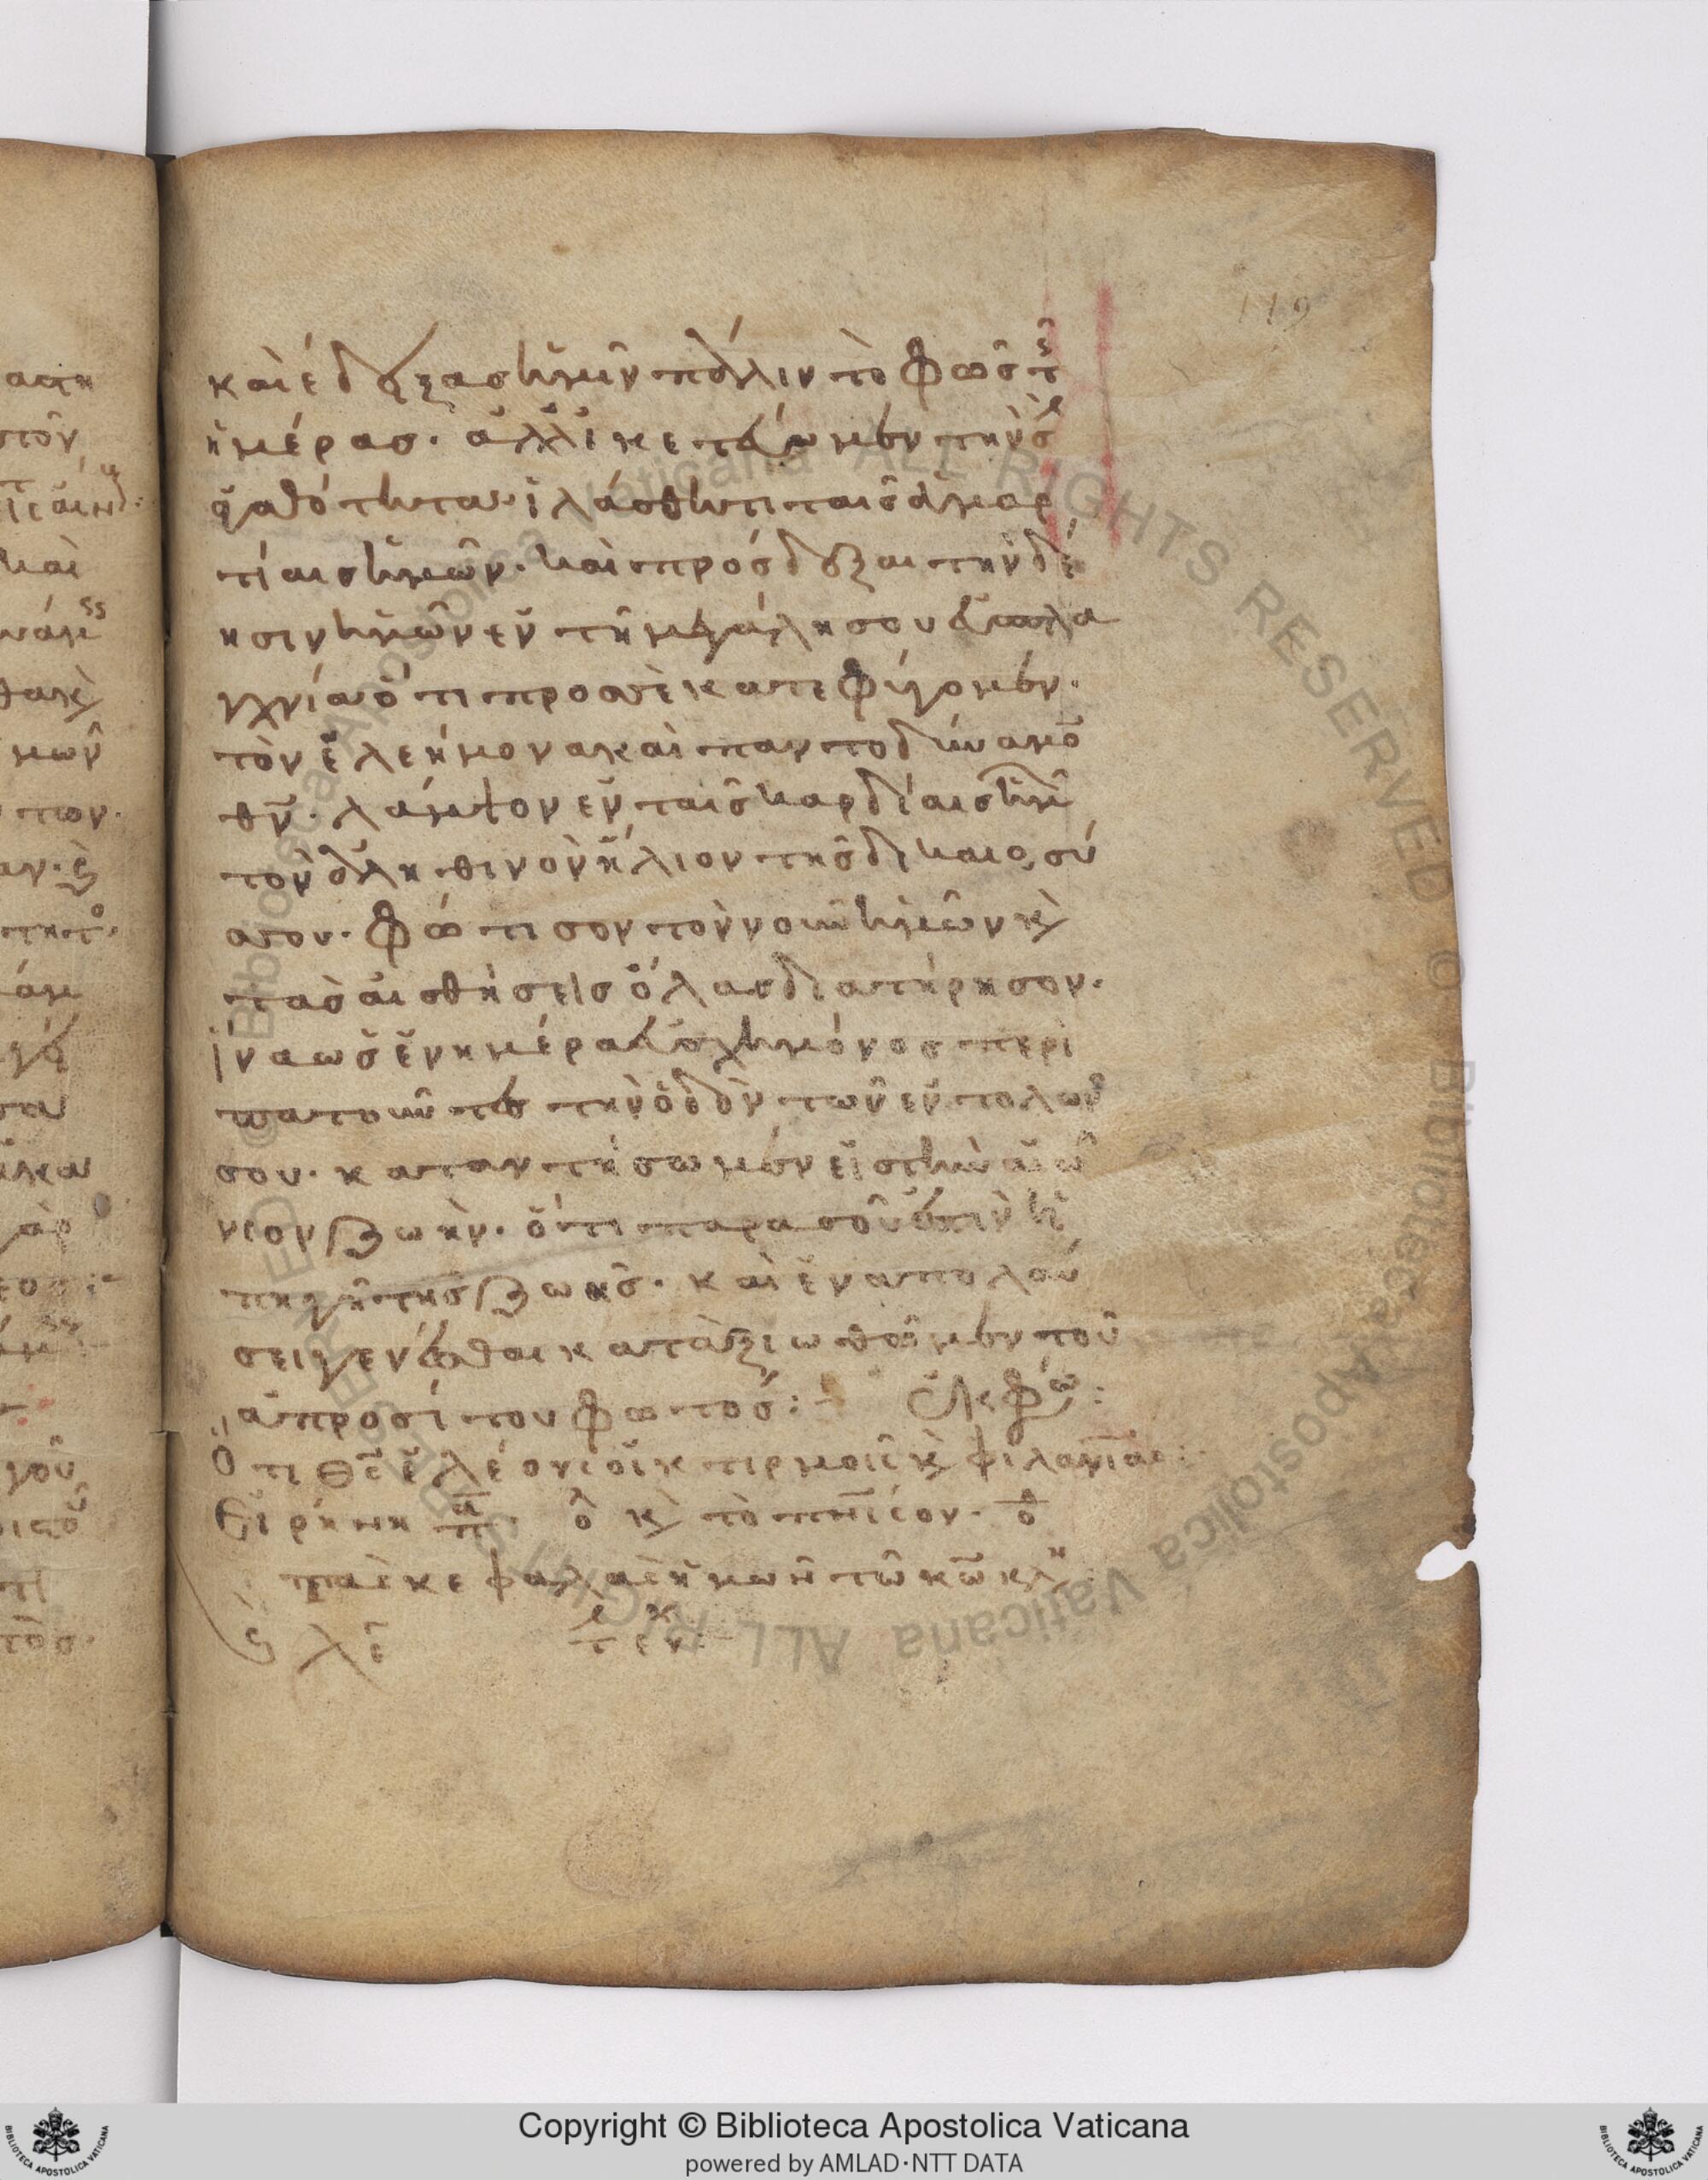 119
καὶ ἔδειξας ἡμῖν πάλιν τὸ φῶς τῆς
ἡμέρας. ἀλλ' ἱκετεύωμεν τὴν σὴν
ἀγαθότητα· ἱλάσθητι ταῖς ἁμαρ
τίαις ἡμῶν. καὶ πρόσδεξαι τὴν δέ
ησιν ἡμῶν ἐν τῇ μεγάλῃ σου εὐσπλα
γχνία ὅτι προς σὲ κατεφύγομεν.
τὸν ἐλεήμονα καὶ παντοδύναμον
θν. λάμψον ἐν ταῖς καρδίαις ἡμῶν
τὸν ἀληθινὸν ἥλιον τῆς δικαιοσύ
σου. φώτισον τὸν νοῦν ἡμῶν κὲ
τὰς αἰσθήσεις ὅλας διατήρησον.
ἵνα ὡς ἐν ἡμέρα εὐσχημόνος περι
πατοῦντες τὴν ὁδὸν τῶν ἐντολῶν
σου. καταντήσωμεν εἰς τὴν αἰώ
νιον ζωὴν. ὅτι παρα σοῦ ἐστιν ἡ
πηγῆ τῆς ζωῆς. καὶ ἐν ἀπολαύ
σει γενέσθαι καταξιωθῶμεν τοῦ
ἀπροσίτου φωτός: ἐκφώ:
Ὅτι θς ἐλέους οἰκτιρμοῖς κὲ φιλανιας:
Εἰρήνη πα ὁ κὲ τὸ πνι σου. ὁ
τὰς κεφαλὰς ἡμῶν τῶ κω κλη